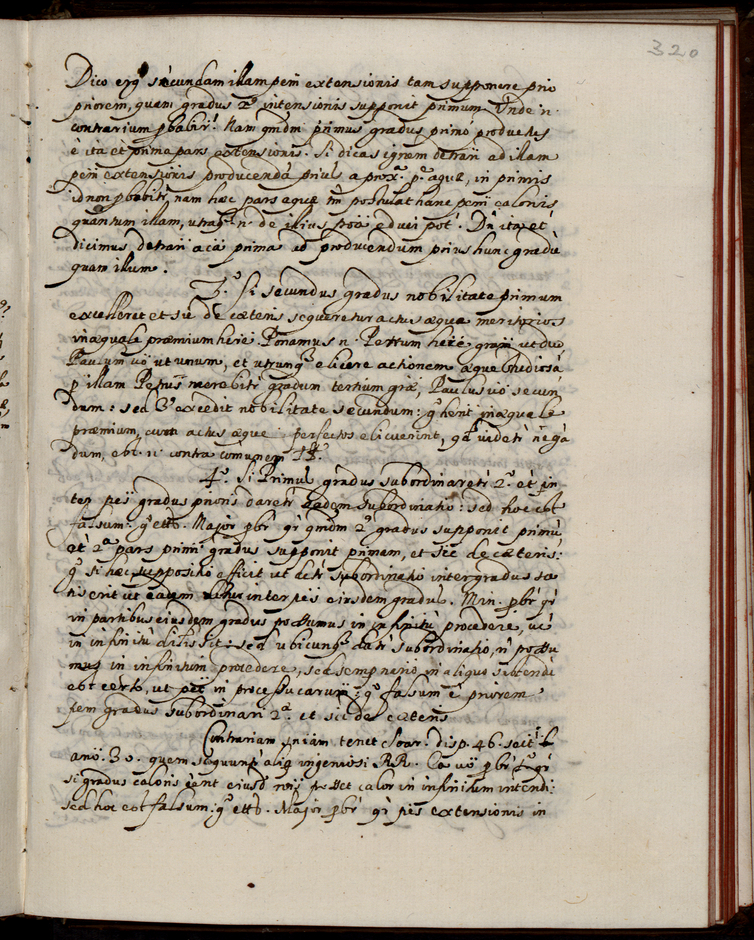 320
Dico ergo secundam illam pēm extensionis tam supponere prio
priorem, quam gradus 2us intensionis supponit primum. Unde n.
contrarium pbabitr? Nam qmdm primus gradus primo produc
ē ita et prima pars extensionis. Si dicas ignem detrāī ad illam
pēm extensionis producendā prius a prox. aquæ, in primis
id non pbabitr, nam hæc pars aquæ tm postulat hanc pēm caloris
quantum illam, utraq n. de illius poā educi pot. Dn ita et
dicimus detrāī a cā prima ad producendum prius hunc gradū
quam illum.
3.o Si secundus gradus nobilitate primum
excelleret et sic de cæteris sequeretur actus æque meritorios
inæquale præmium here. Ponamus n. Petrum here grām ut duo
Paulum vō ut unum, et utrunq elicere actionem æque studiosā
p illam Petrus merebitr gradum tertium græ, Paulus vō secun
dum: sed 3us excedit nobilitate secundum: go hent inæquale
præmium, cum actus æque perfectos elicuerint, qd videtr negā
dum, est n. contra comunem
4.o Si Primus gradus subordinaretr 2.o et in
ter pēs gradus prioris daretr eadem subordinatio: sed hoc est
falsum: go etto. Major pbr qr qmdm 2us gradus supponit primū
et 2a pars primi gradus supponit primam, et sic de cæteris:
go si hæc suppositio efficit ut detr subordinatio inter gradus sa
tis erit ut eadem inter pēs eiusdem gradus. Min. pbr qr
in partibus eiusdem gradus possumus in infinitū procedere, ut
in infinitū divis sit: sed ubicunq datr subordinatio, n possu
mus in infinitum procedere, sed semp in aliquo sistendū
est certo, ut pēt in processu carum: go falsum ē priorem
pēm gradus subordinari 2.a et sic de cæteris
Contrariam sniam tenet Soar. disp. 46. sect.
30. quem sequuntr aliq ingeniosi RR. Ea vō pbr qr
si gradus caloris ēent eiusd rōis posset calor in infinitum intendi:
sed hoc est falsum: go etto. Major pbr qr pēs extensionis in